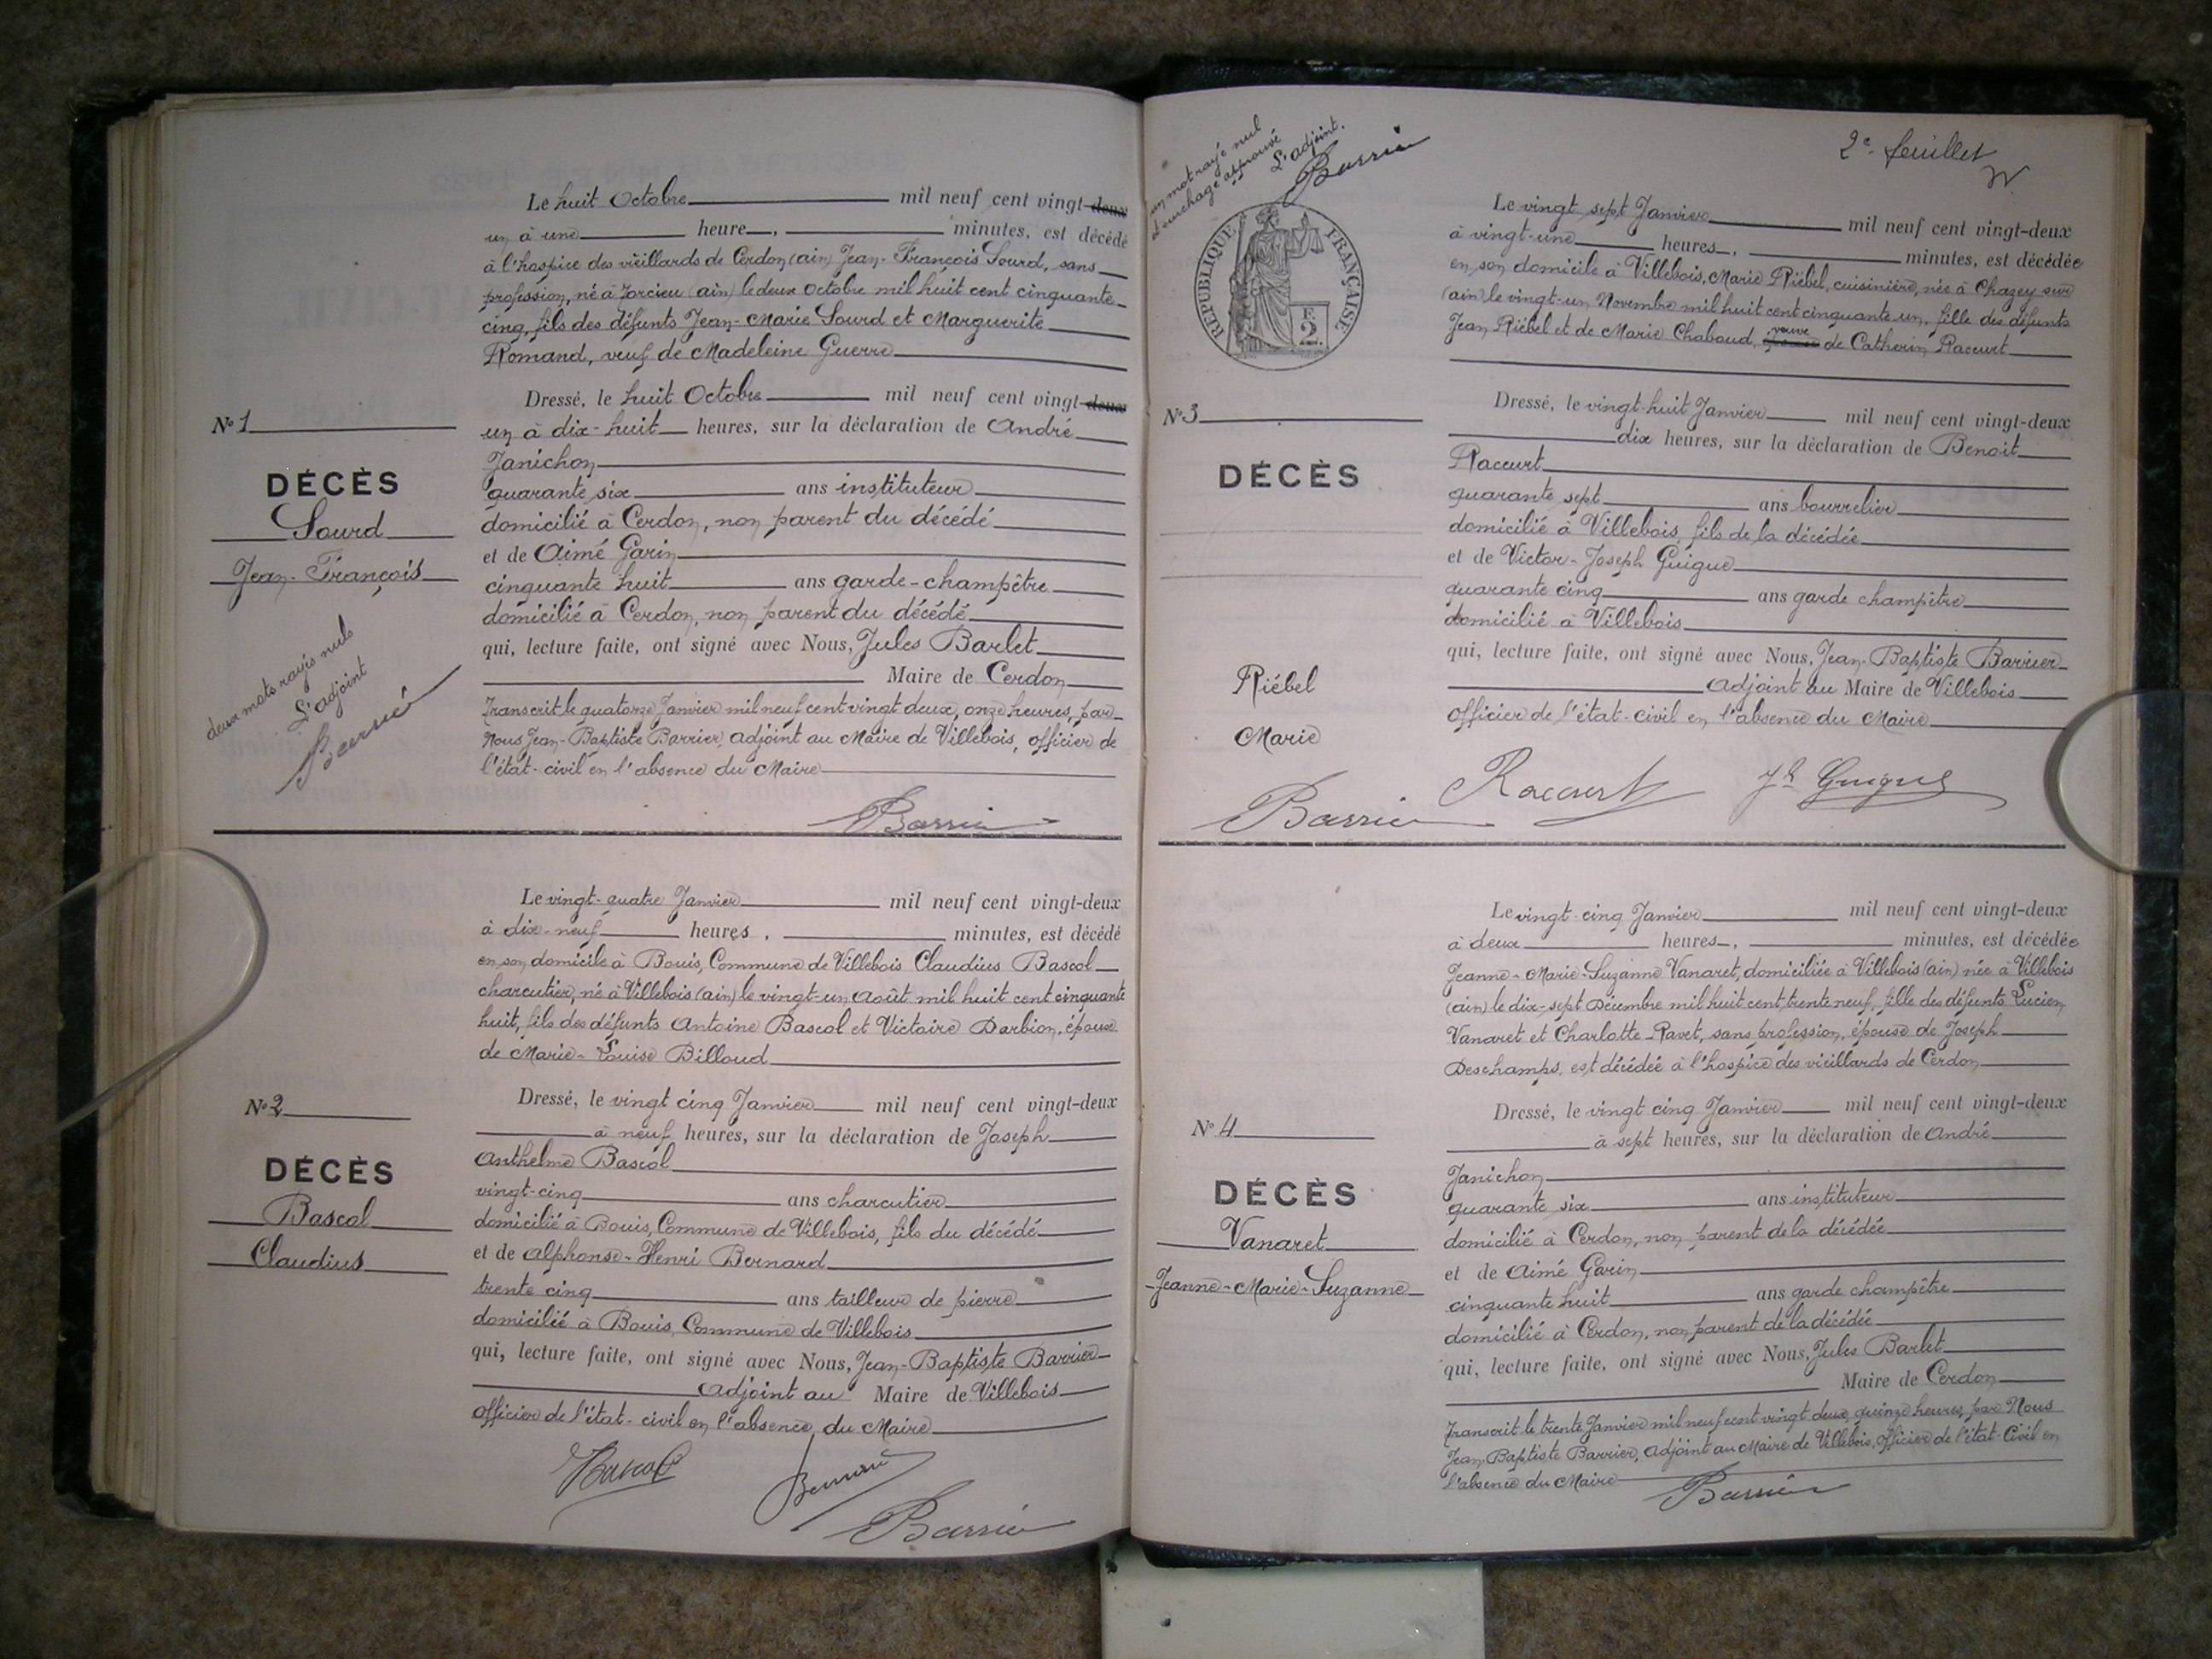 Le huit Octobre mil neuf cent vingt-deux
un à une heure, minutes, est décédé
à l'hospice des vieillards de Cerdon (ain) Jean-François Sourd, sans
profession, né à Torcieu (ain) le deux octobre mil huit cent cinquante
cinq, fils des défunts Jean-Marie Sourd et Marguerite
Romand, veuf de Madeleine Guerre
Dressé, le huit Octobre mil neuf cent vingt-deux
un à dix-huit heures, sur la déclaration de André
Janichon
quarante six ans instituteur
domicilié à Cerdon, non parent du décédé
et de Aimé Garin
cinquante huit ans garde-champêtre
domicilié à Cerdon, non parent du décédé
qui, lecture faite, ont signé avec Nous, Jules Barlet
Maire de Cerdon
Transcrit le quatorze Janvier mil neuf cent vingt deux, onze heures, par
Nous Jean-Baptiste Barrier, adjoint au Maire de Villebois, officier de
l'état-civil en l'absence du Maire
Barrier
N° 1
DÉCÈS
Sourd
Jean-François
deux mots rayés nuls
L'adjoint
Barrier
Le vingt-quatre Janvier mil neuf cent vingt-deux
à dix-neuf heures, minutes, est décédé
en son domicile à Bouis, Commune de Villebois Claudius Bascol
charcutier, né à Villebois (ain) le vingt-un Août mil huit cent cinquante
huit, fils des défunts Antoine Bascol et Victoire Darbion, époux
de Marie-Louise Billoud
Dressé, le vingt cinq Janvier mil neuf cent vingt-deux
à neuf heures, sur la déclaration de Joseph
Anthelme Bascol
vingt-cinq ans charcutier
domicilié à Bouis, Commune de Villebois, fils du décédé
et de Alphonse-Henri Bernard
trente cinq ans tailleur de pierre
domicilié à Bouis, Commune de Villebois
qui, lecture faite, ont signé avec Nous, Jean-Baptiste Barrier
adjoint au Maire de Villebois
officier de l'état-civil en l'absence du Maire
Bascol
Barrier
N° 2
DÉCÈS
Bascol
Claudius
un mot rayé nul
surchage approuvé
L'adjoint.
Barrier
2e feuillet
RÉPUBLIQUE FRANÇAISE
2
Le vingt sept Janvier mil neuf cent vingt-deux
à vingt-une heures, minutes, est décédée
en son domicile à Villebois, Marie Riébel, cuisinière, née à Chazey sur
(ain) le vingt-un Novembre mil huit cent cinquante un, fille des défunts
Jean Riébel et de Marie Chaboud, veuve de Catherin Raccurt
Dressé, le vingt-huit Janvier mil neuf cent vingt-deux
dix heures, sur la déclaration de Benoit
Raccurt
quarante sept ans bourrelier
domicilié à Villebois, fils de la décédée
et de Victor-Joseph Guigue
quarante cinq ans garde champêtre
domicilié à Villebois
qui, lecture faite, ont signé avec Nous, Jean-Baptiste Barrier
adjoint au Maire de Villebois
officier de l'état-civil en l'absence du Maire
Barrier Raccurt Guigue
N° 3
DÉCÈS
Riébel
Marie
Le vingt-cinq Janvier mil neuf cent vingt-deux
à deux heures, minutes, est décédée
Jeanne-Marie-Suzanne Vanaret, domiciliée à Villebois (ain) née à Villebois
(ain) le dix-sept Décembre mil huit cent trente neuf, fille des défunts Lucien
Vanaret et Charlotte Ravet, sans profession, épouse de Joseph
Deschamps, est décédée à l'hospice des vieillards de Cerdon
Dressé, le vingt cinq Janvier mil neuf cent vingt-deux
à sept heures, sur la déclaration de André
Janichon
quarante six ans instituteur
domicilié à Cerdon, non parent de la décédée
et de Aimé Garin
cinquante huit ans garde champêtre
domicilié à Cerdon, non parent de la décédée
qui, lecture faite, ont signé avec Nous, Jules Barlet
Maire de Cerdon
Transcrit le trente Janvier mil neuf cent vingt deux, quinze heures, par Nous
Jean-Baptiste Barrier, adjoint au Maire de Villebois, officier de l'état-Civil en
l'absence du Maire
Barrier
N° 4
DÉCÈS
Vanaret
Jeanne-Marie-Suzanne